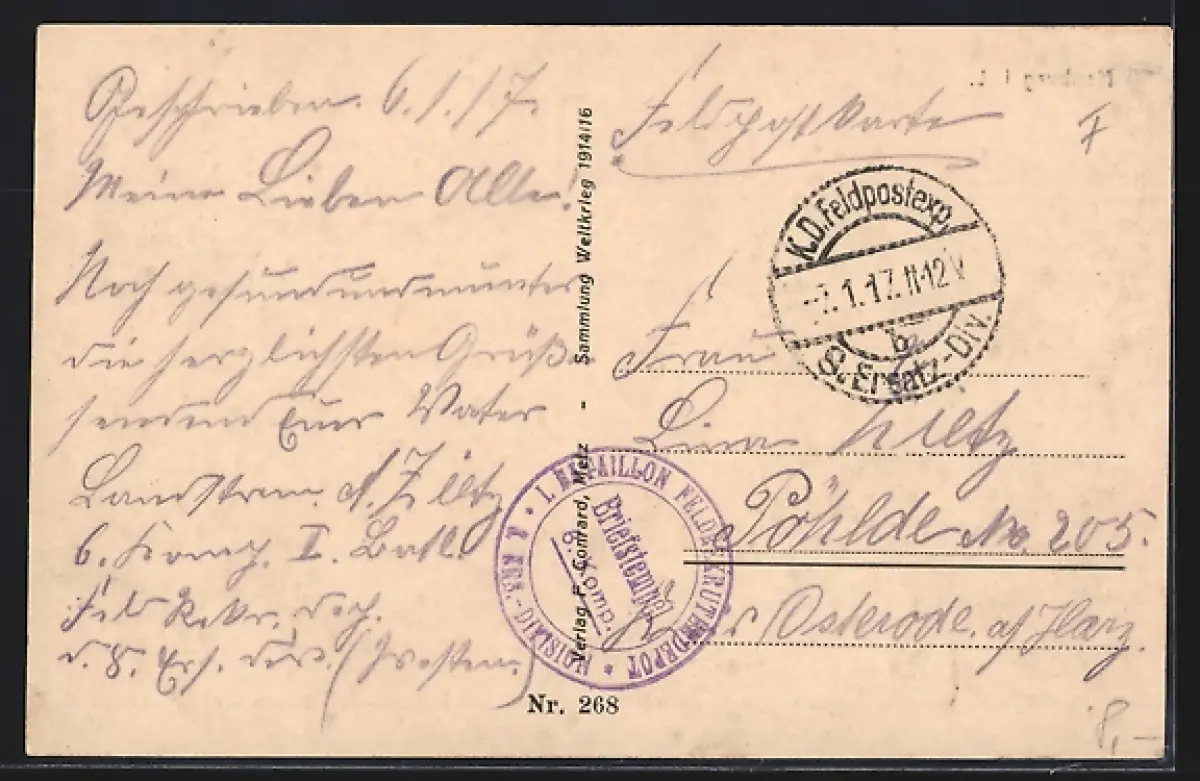 Geschrieben. 6./1./17.
Meine Lieben Alle!
Noch gesund und munter
die herzlichsten Grüße
sendend Euer Vater
Landstrm. A. Ziltz
6. Komp. I. Batl.
Feld Rekr. Dep.
d. 8. Ers. Div. (Westen.)
Sammlung Weltkrieg 1914/16
Verlag P. Conrard, Metz
Nr. 268
Feldpostkarte
K.D. Feldpostexp.
-7.1.17. 11-12 V
b
8. Ersatz-Div.
Frau
Lina Ziltz
Pöhlde No. 205.
Osterode. a/Harz.
I. BATAILLON FELDREKRUTENDEPOT * 8 ERS-DIVISION *
Briefstempel
6. Komp.
8,-